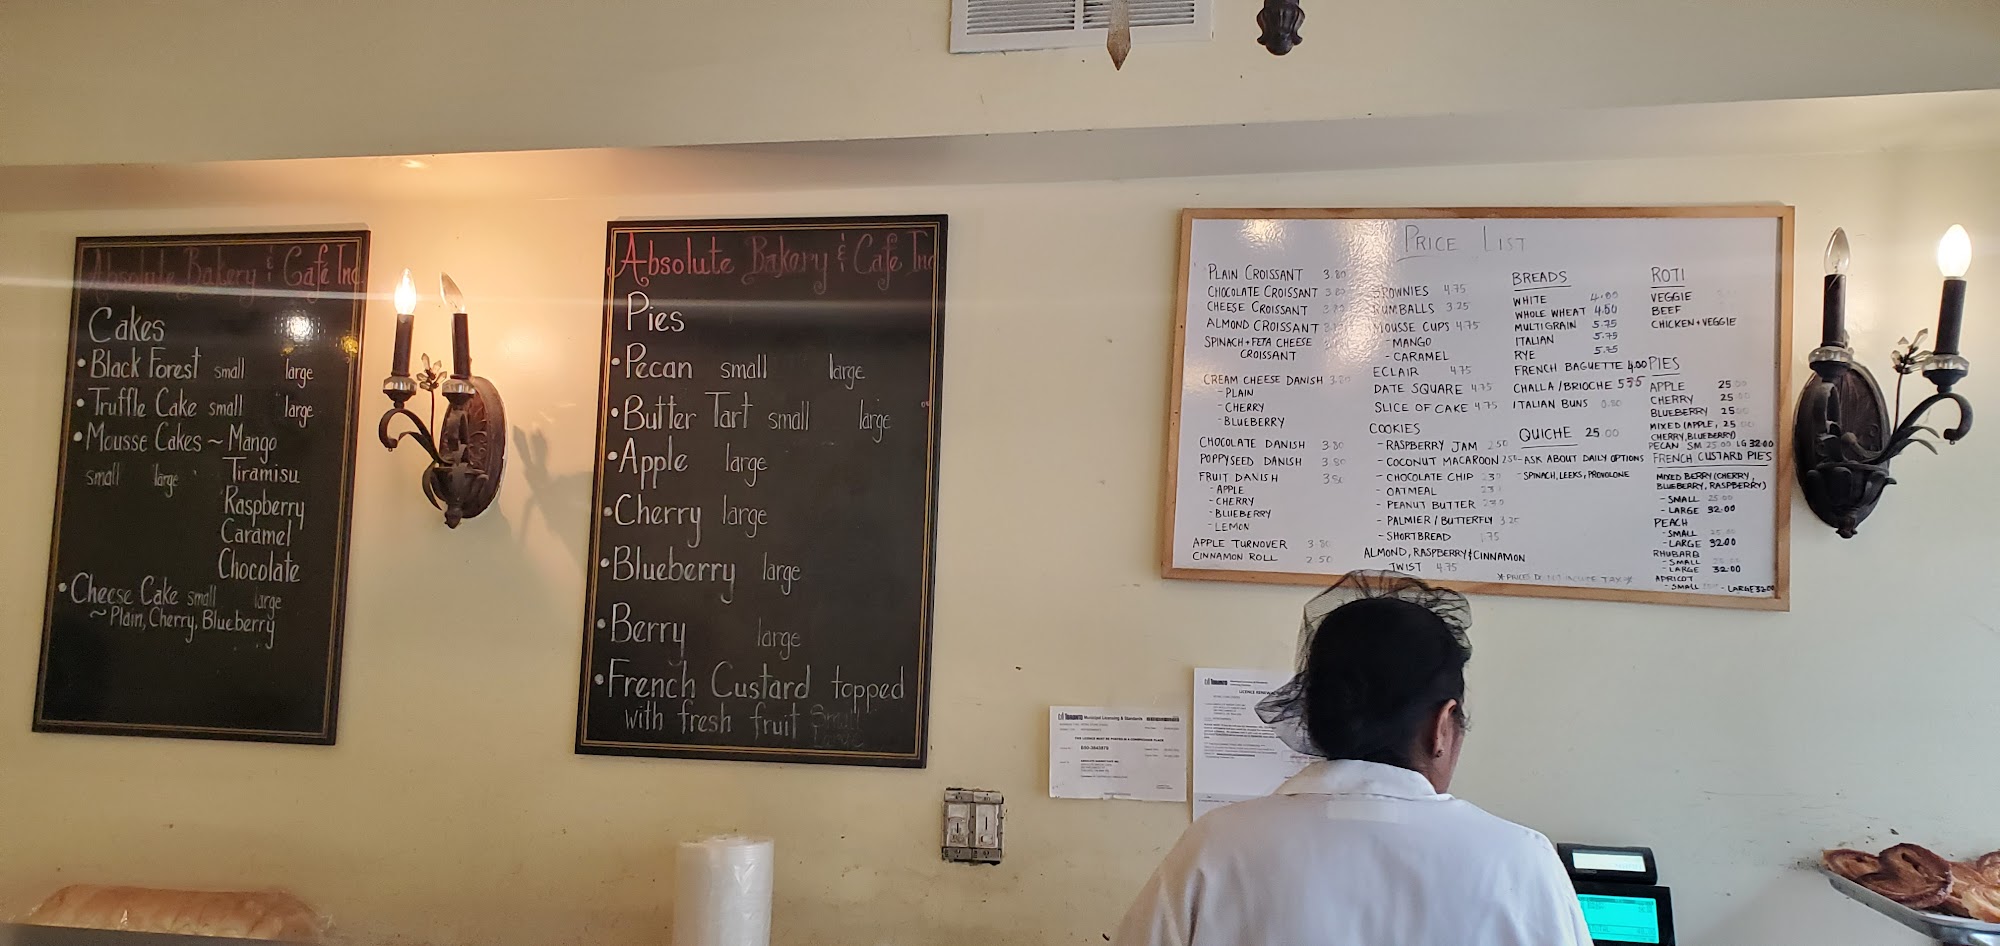 Absolute Bakery & Café Inc
Cakes
• Black Forest small large
• Truffle Cake small large
• Mousse Cakes ~ Mango
small large Tiramisu
Raspberry
Caramel
Chocolate
• Cheese Cake small large
~ Plain, Cherry, Blueberry
Absolute Bakery & Café Inc
Pies
• Pecan small large
• Butter Tart small large
• Apple large
• Cherry large
• Blueberry large
• Berry large
• French Custard topped
with fresh fruit Small
Large
PRICE LIST
PLAIN CROISSANT 3.80
CHOCOLATE CROISSANT
CHEESE CROISSANT
ALMOND CROISSANT
SPINACH + FETA CHEESE
CROISSANT
CREAM CHEESE DANISH 3.80
- PLAIN
- CHERRY
- BLUEBERRY
CHOCOLATE DANISH 3.80
POPPYSEED DANISH 3.80
FRUIT DANISH 3.80
- APPLE
- CHERRY
- BLUEBERRY
- LEMON
APPLE TURNOVER 3.80
CINNAMON ROLL 2.50
BROWNIES 4.75
RUMBALLS 3.25
MOUSSE CUPS 4.75
- MANGO
- CARAMEL
ECLAIR 4.75
DATE SQUARE 4.75
SLICE OF CAKE 4.75
COOKIES
- RASPBERRY JAM 2.50
- COCONUT MACAROON 2.50
- CHOCOLATE CHIP
- OATMEAL
- PEANUT BUTTER
- PALMIER / BUTTERFLY 3.25
- SHORTBREAD
ALMOND, RASPBERRY & CINNAMON
TWIST 4.75
BREADS
WHITE 4.00
WHOLE WHEAT 4.50
MULTIGRAIN 5.75
ITALIAN 5.75
RYE 5.75
FRENCH BAGUETTE 4.00
CHALLA / BRIOCHE
ITALIAN BUNS 0.80
QUICHE 25.00
- ASK ABOUT DAILY OPTIONS
- SPINACH, LEEKS, PROVOLONE
* PRICES DO NOT INCLUDE TAX *
ROTI
VEGGIE
BEEF
CHICKEN + VEGGIE
PIES
APPLE 25.00
CHERRY 25.00
BLUEBERRY 25.00
MIXED (APPLE, 25.00
CHERRY, BLUEBERRY)
PECAN SM 25.00 LG 32.00
FRENCH CUSTARD PIES
MIXED BERRY (CHERRY,
BLUEBERRY, RASPBERRY)
- SMALL 25.00
- LARGE 32.00
PEACH
- SMALL 25.00
- LARGE 32.00
RHUBARB
- SMALL
- LARGE 32.00
APRICOT
- SMALL - LARGE 32.00
TORONTO Municipal Licensing & Standards
TORONTO